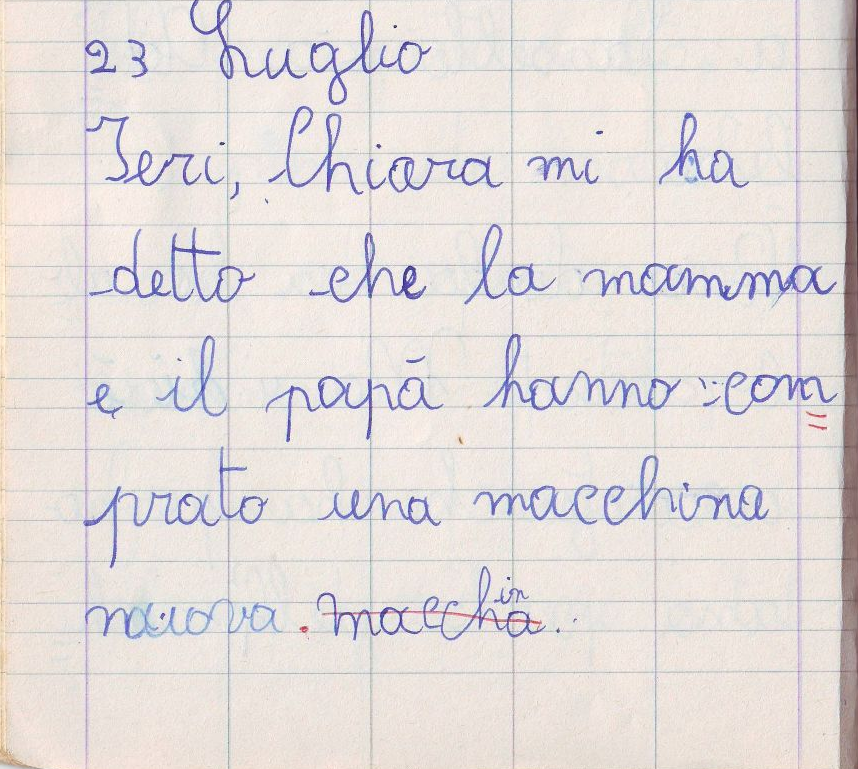 23 Luglio
Ieri, Chiara mi ha
detto che la mamma
e il papà hanno com=
prato una macchina
nuova. macchina.